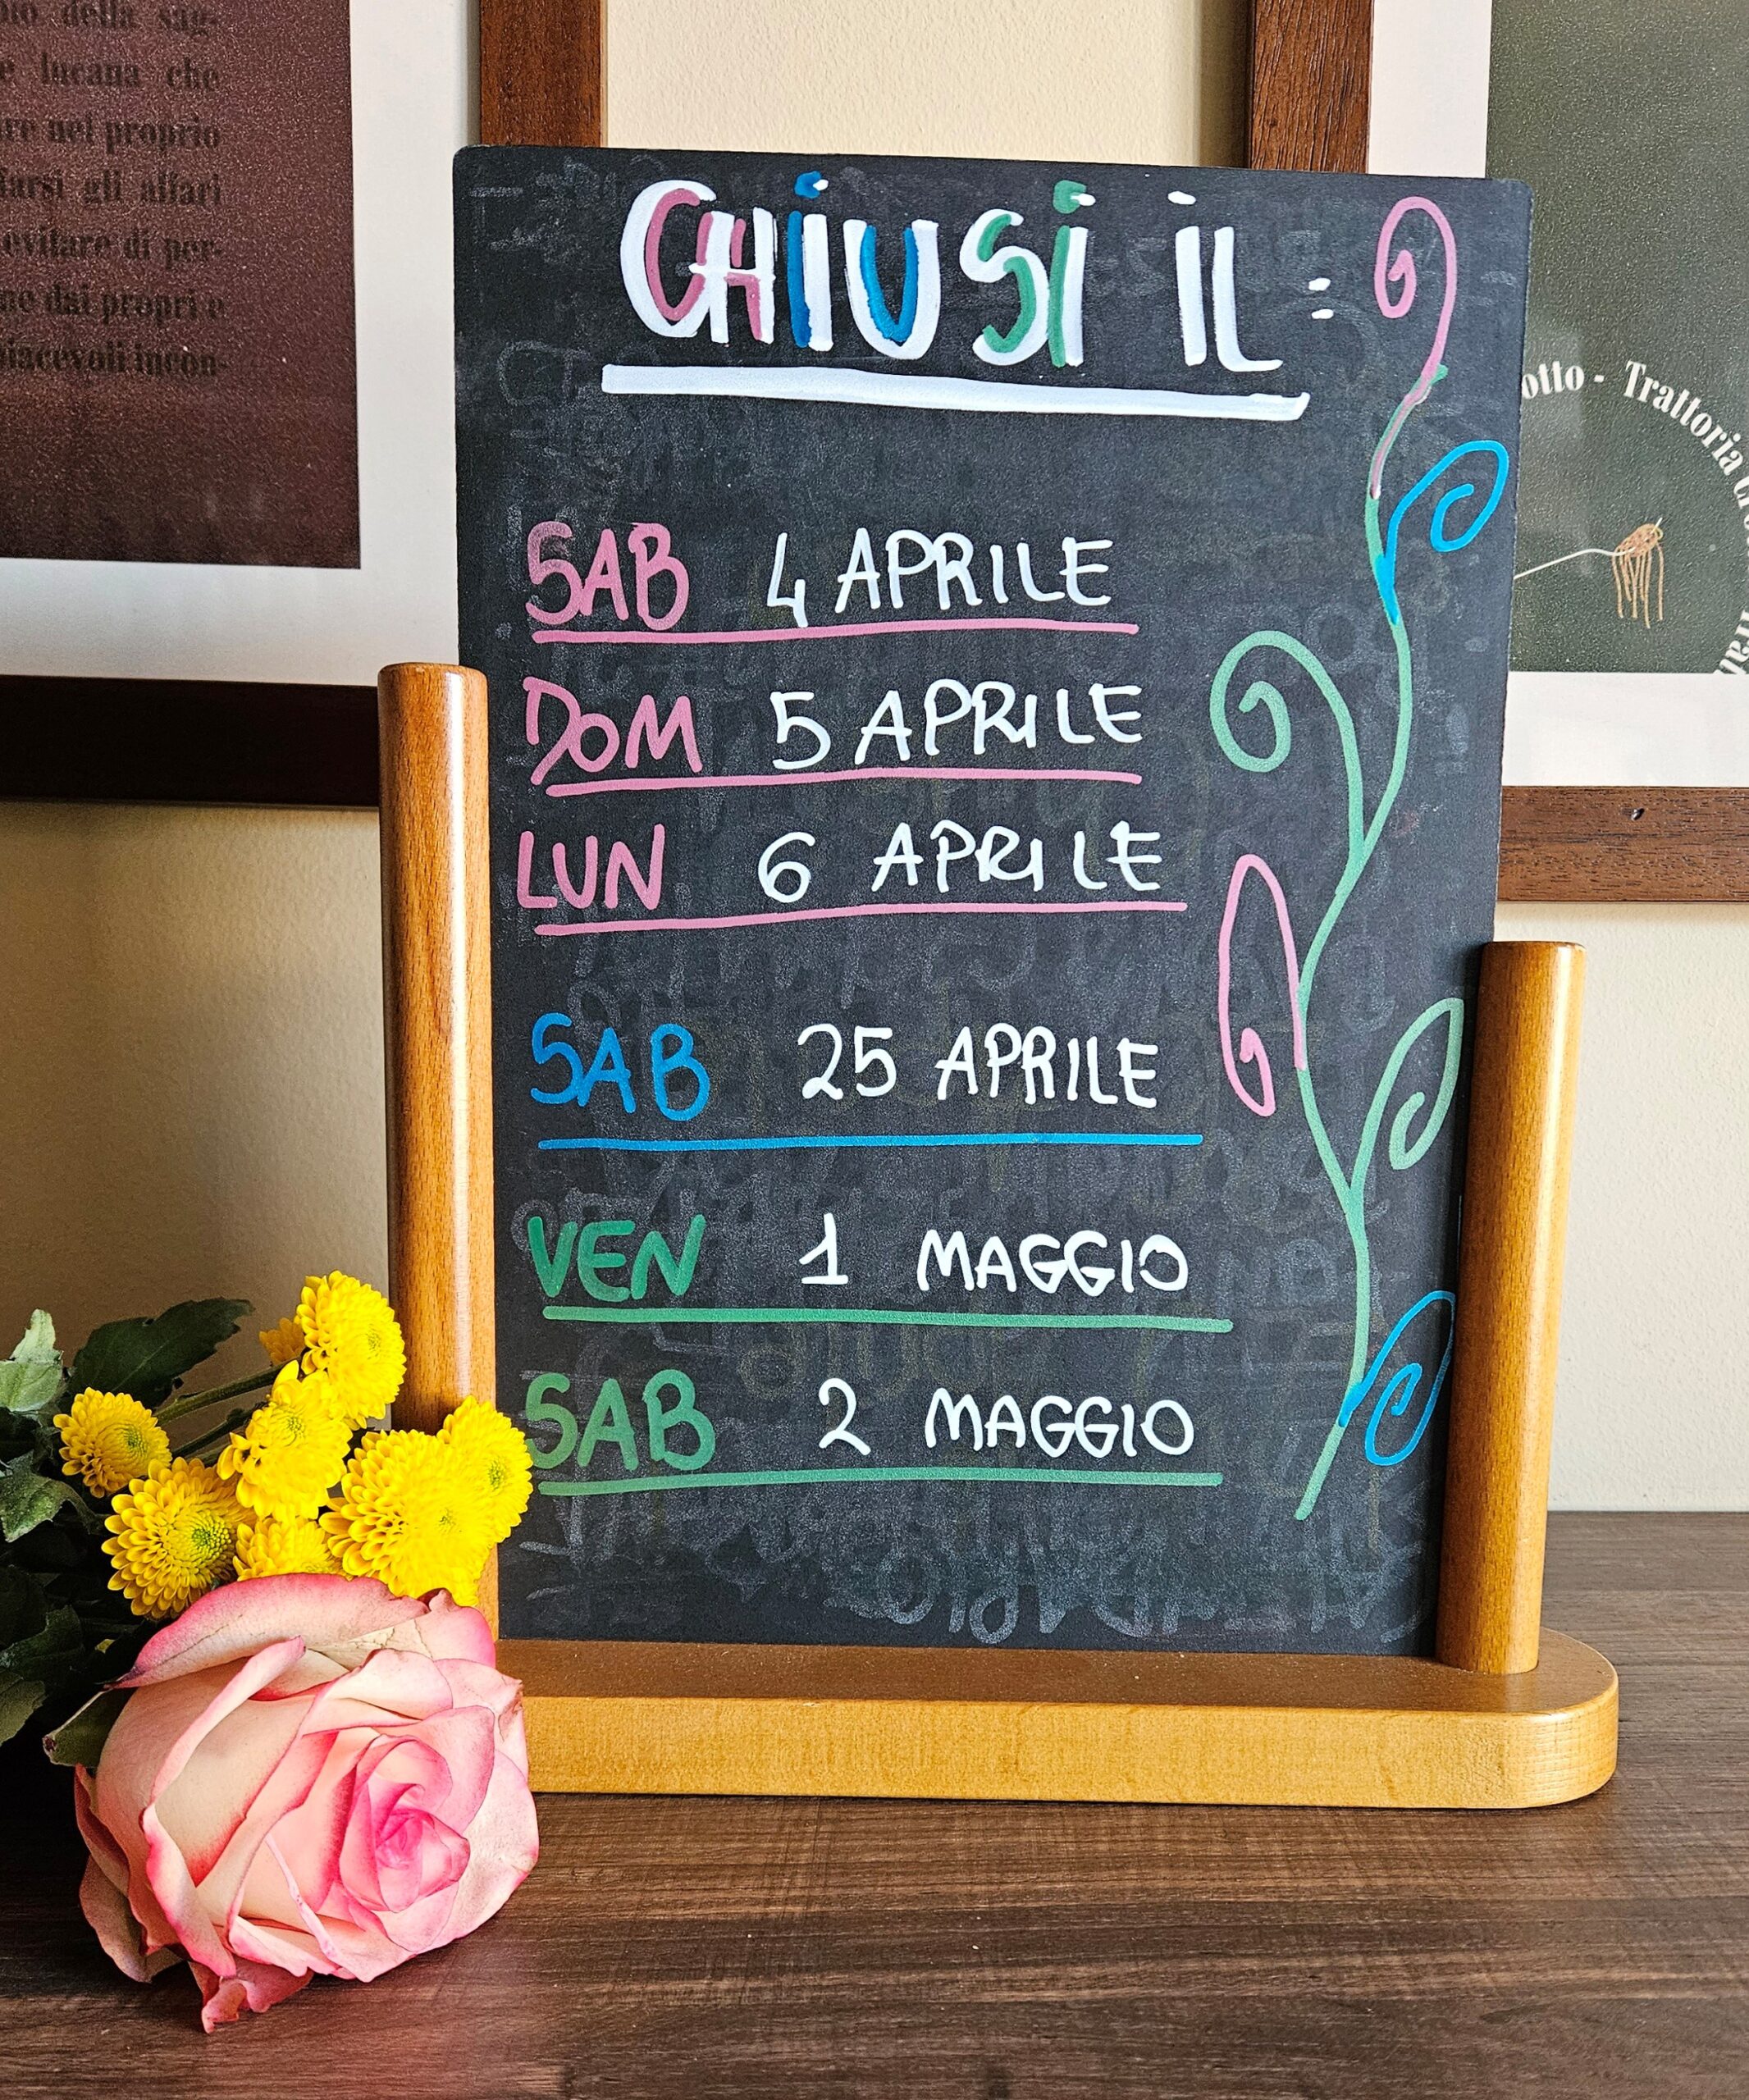 della sag-
lucana che
nel proprio
gli affari
evitare di per-
dai propri e
piacevoli incon-
CHiUSi iL:
SAB 4 APRILE
DOM 5 APRILE
LUN 6 APRILE
SAB 25 APRILE
VEN 1 MAGGIO
SAB 2 MAGGIO
- Trattoria